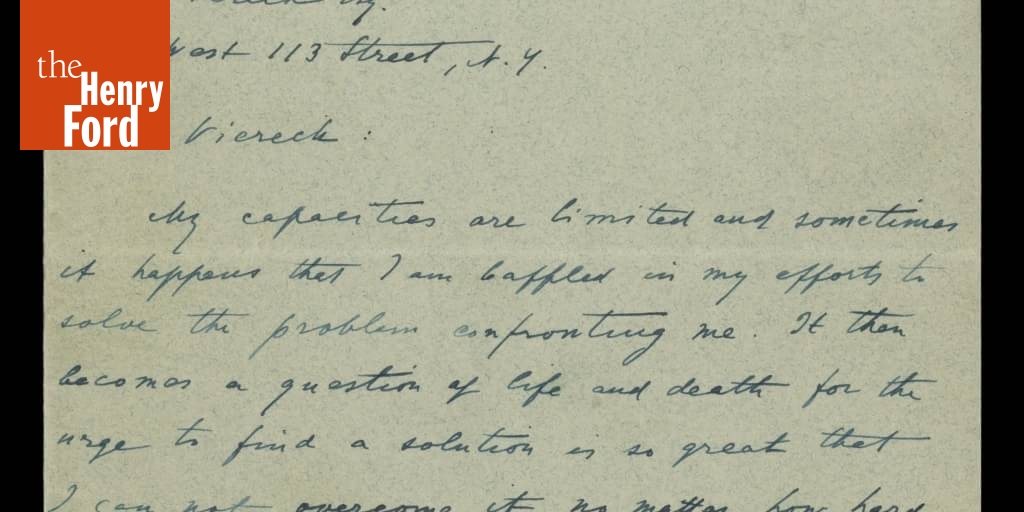 the
Henry
Ford
Viereck Esq.
West 113 Street, N.Y.
Viereck :
My capacities are limited and sometimes
it happens that I am baffled in my efforts to
solve the problem confronting me. It then
becomes a question of life and death for the
urge to find a solution is so great that
I can not overcome it no matter how hard